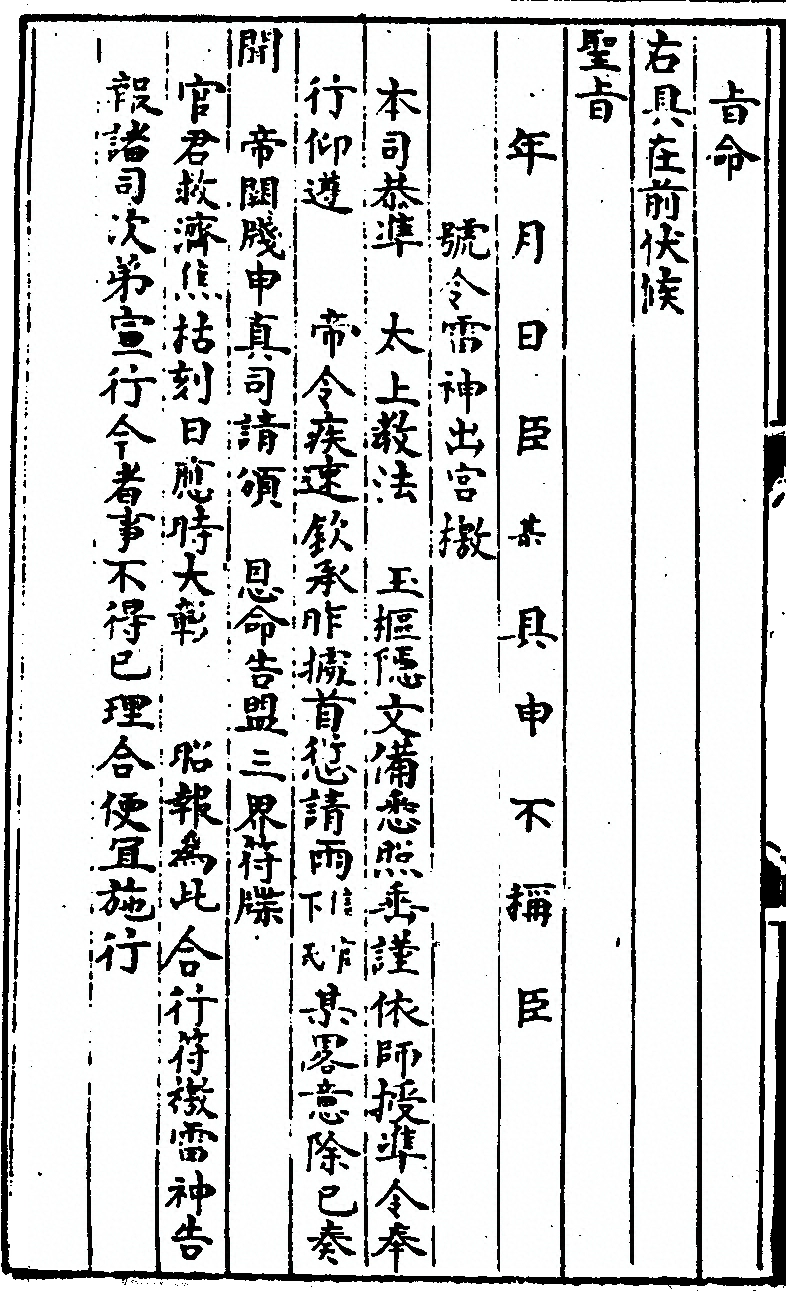 旨命
右具在前伏候
聖旨
年月日臣某具申不稱臣
號令雷神出宮檄
本司恭準 太上教法 玉樞隱文備悉照垂謹依師授準令奉
行仰遵 帝令疾速欽承昨據首愆請雨某畧意除已奏
聞 帝闕牋申真司請頒 恩命告盟三界符牒
官君救濟焦枯刻日應時大彰 昭報為此合行符檄雷神告
報諸司次第宣行今者事不得已理合便宜施行